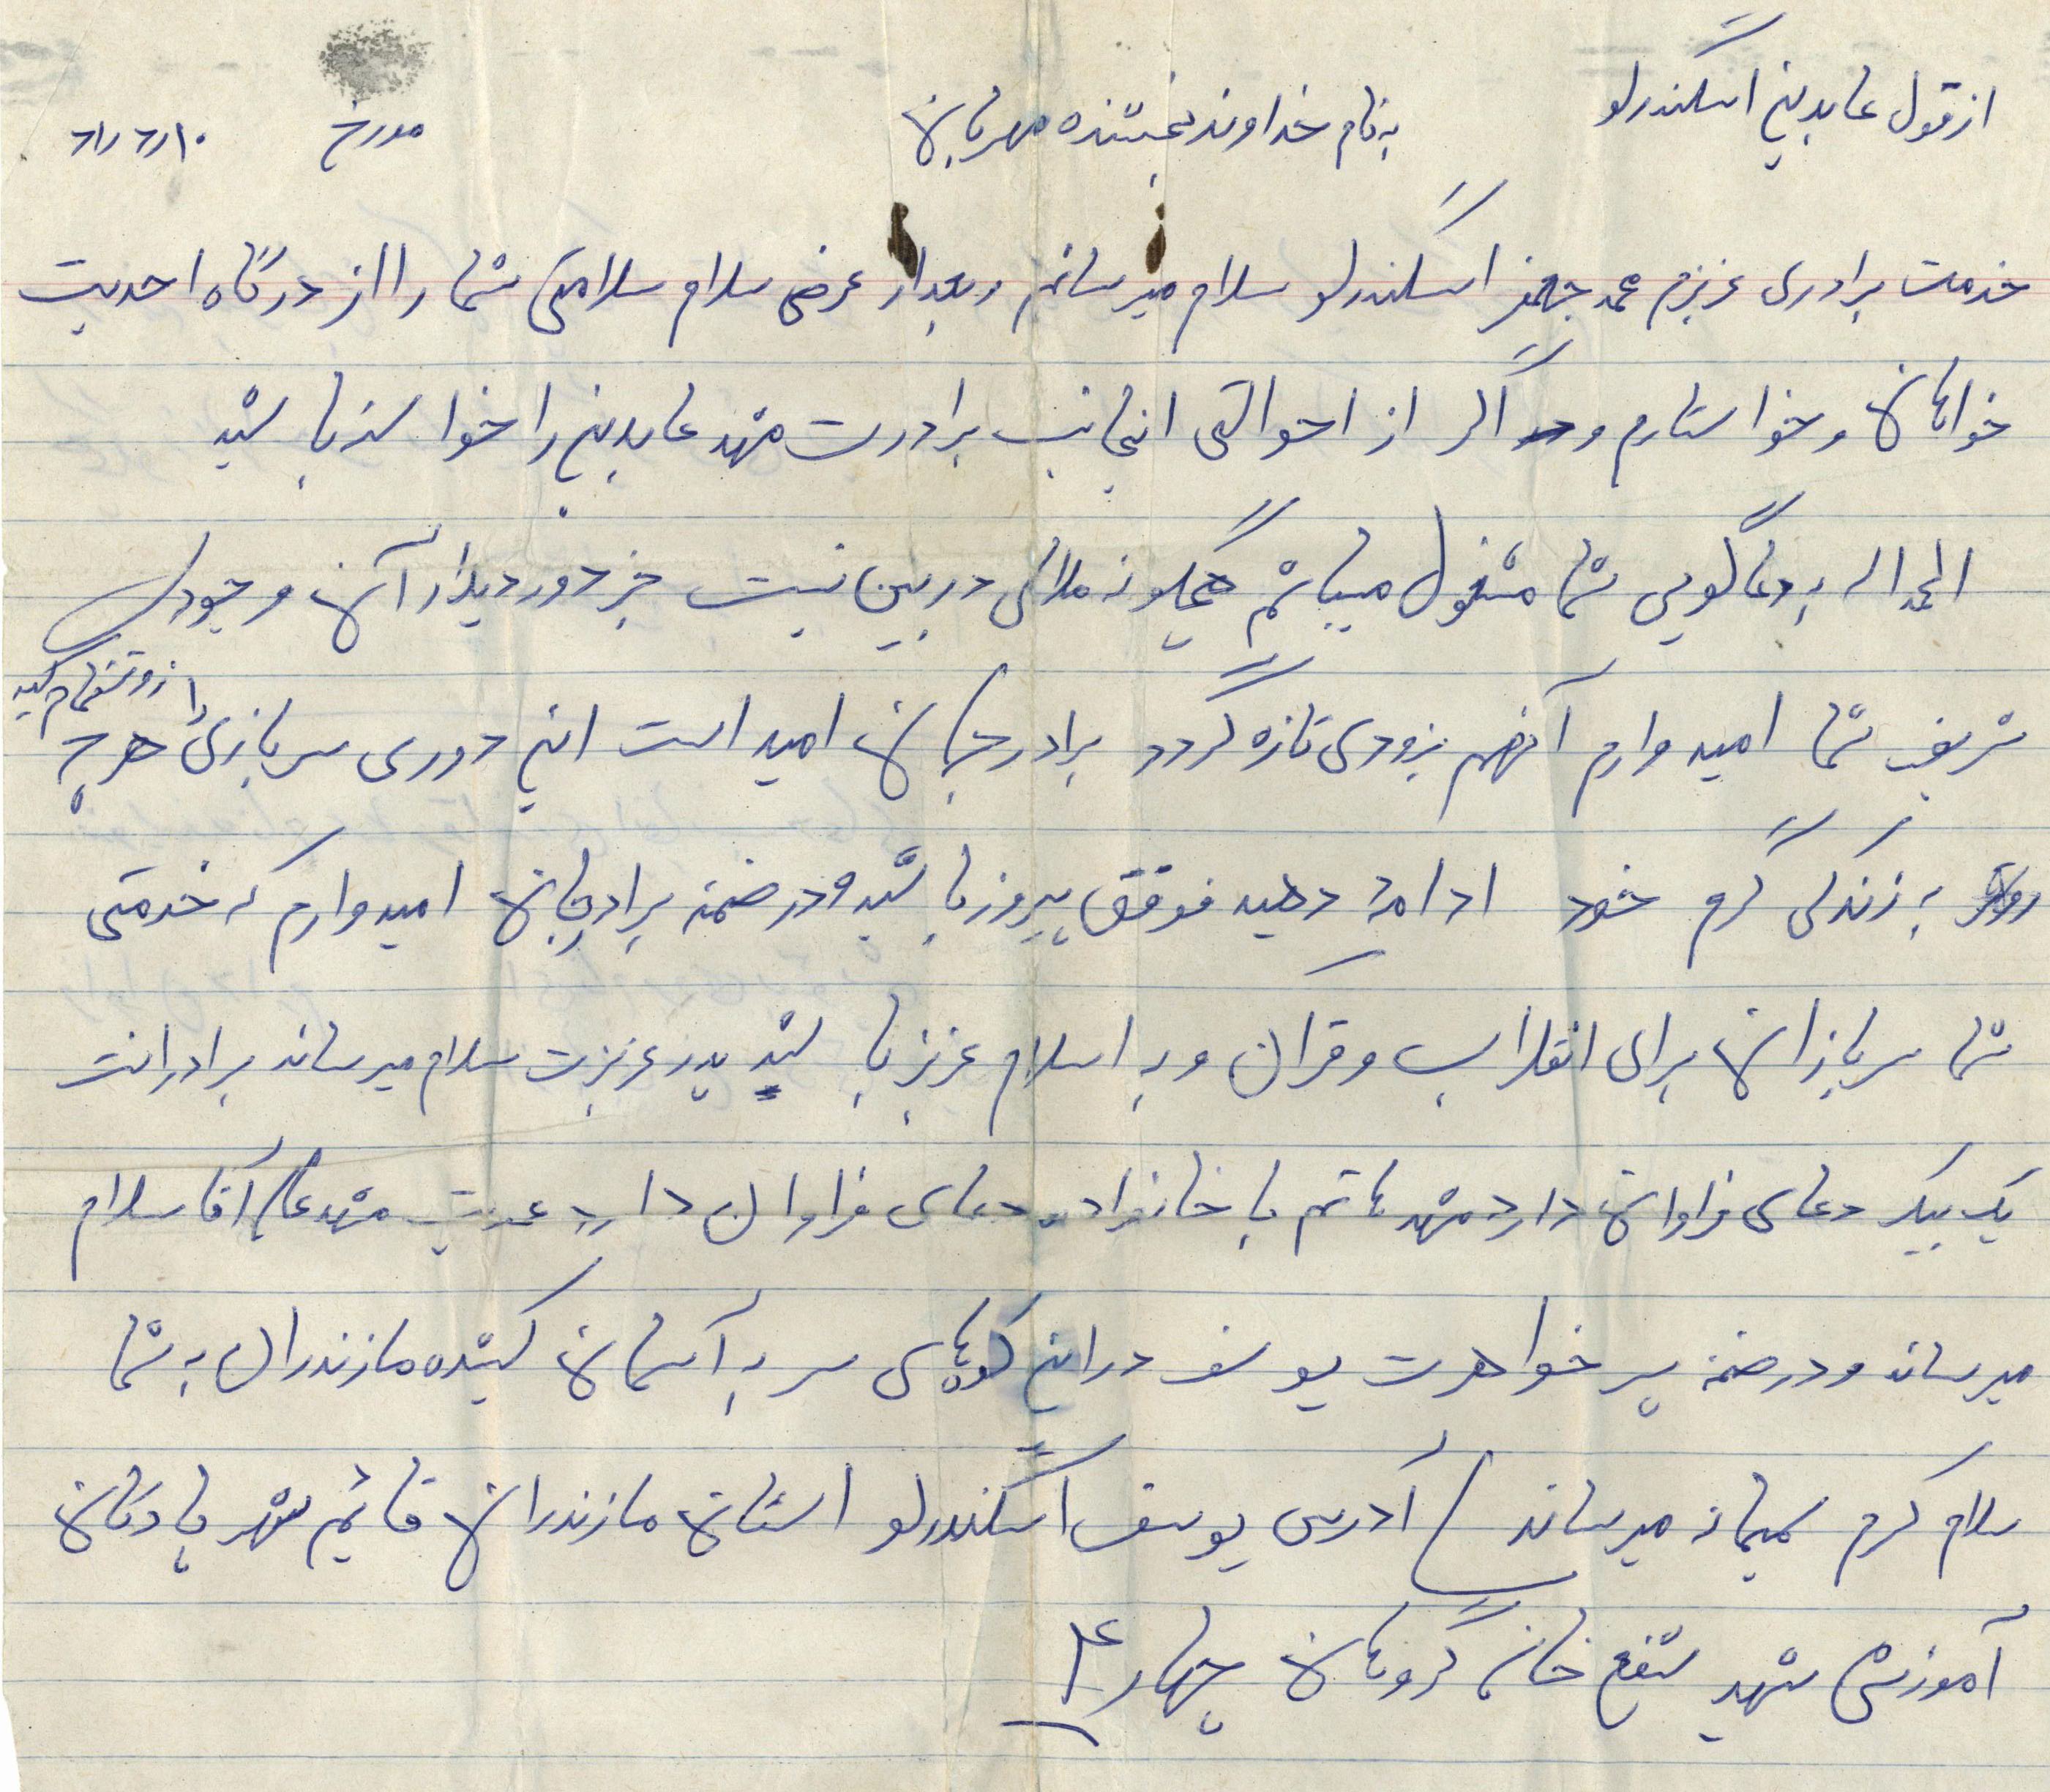 از قول عابدین اسکندرلو
به نام خداوند بخشنده مهربان
مورخ ۶۱/۶/۱۰
خدمت برادری عزیزم محمد جعفر اسکندرلو سلام میرسانم و بعد از عرض سلام سلامتی شما را از درگاه احدیت
خواهان و خواستارم و اگر از احوالتی اینجانب برادرت مشهد عابدین را خواسته باشید
الحمداله به دعاگویی شما مشغول میباشم هیچگونه ملالی در بین نیست جز دور دیدار آن وجودی
شریف شما امیدوارم آنهم بزودی تازه گردد برادر جان امید است این دوری سربازی را هر چه زودتر تمام کنید
به زندگی گرم خود ادامه دهید موفق پیروز باشید و در ضمن برادرجان امیدوارم که خدمتی
شما سربازان برای انقلاب و قرآن و به اسلام عزیز باشد پدر عزیزت سلام میرساند برادرانت
یک بیک دعای فراوان دارد مشهد حاتم با خانواده دعای فراوان دارد عمویت مشهد آقا سلام
میرساند و در ضمن پسر خواهرت یوسف در این کوهای سر به آسمان کشیده مازندران به شما
سلام گرم صمیمانه میرساند / آدرس یوسف اسکندرلو استان مازندران قائم شهر پادگان
آموزش شهید خانه گروهان چهار ۴